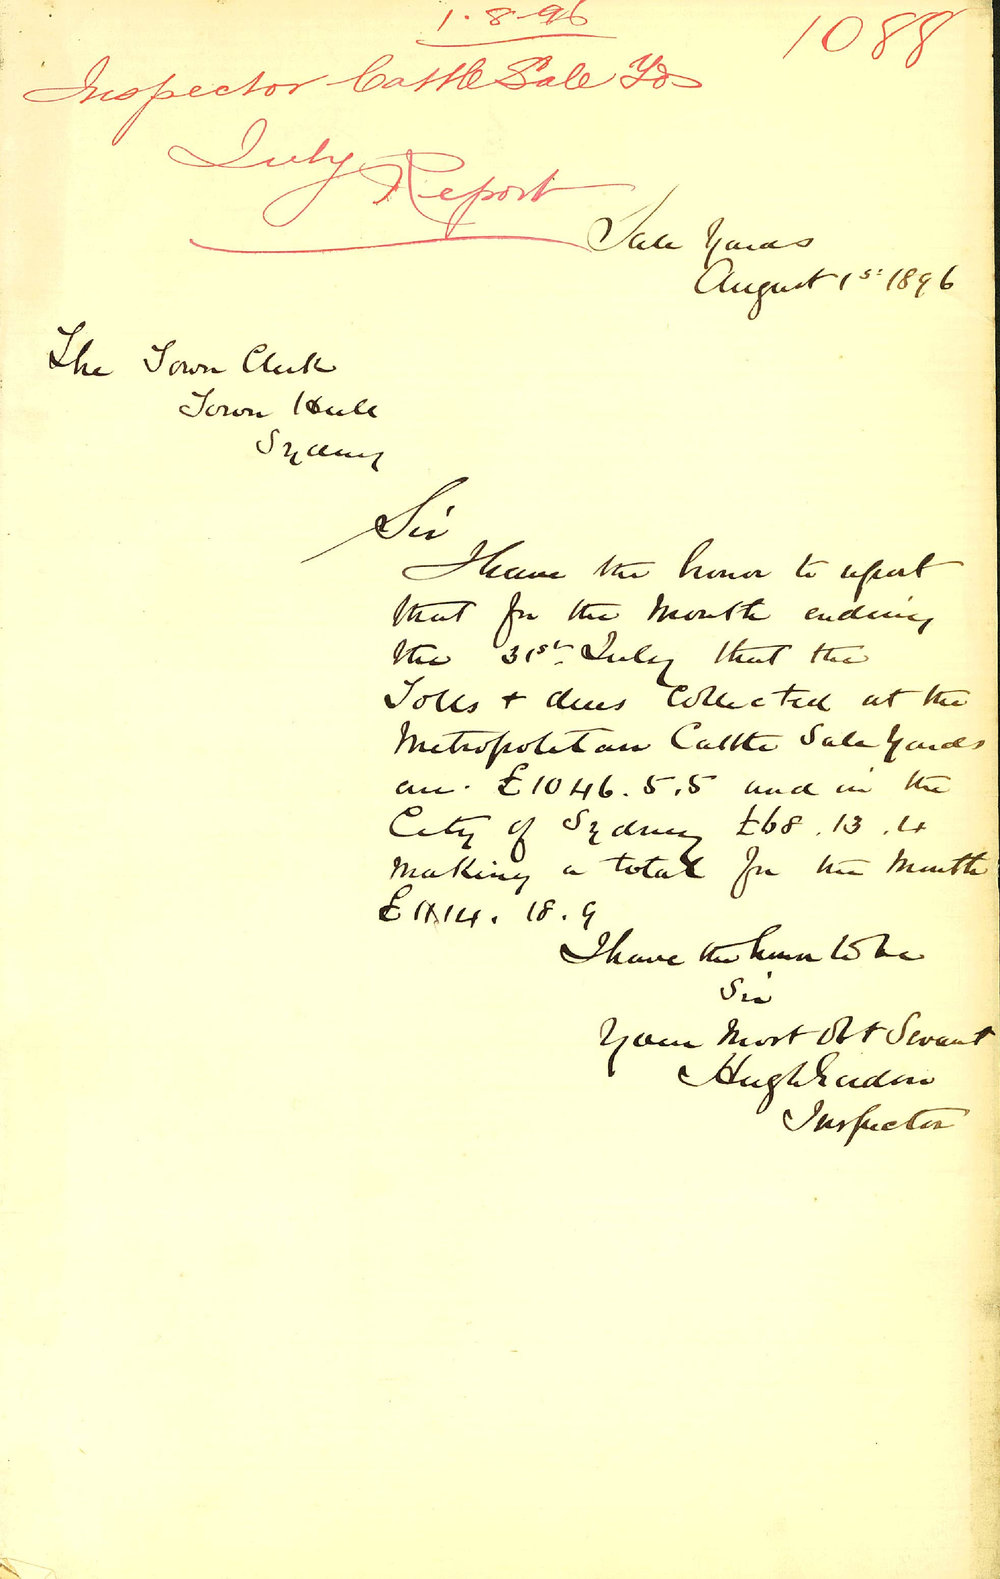 1.8.96
1088
Inspector Cattle Sale Yds
July Report
Sale Yards
August 1st 1896
The Town Clerk
Town Hall
Sydney
Sir
I have the honor to report
that for the Month ending
the 31st July that the
Tolls + dues Collected at the
Metropolitan Cattle Sale Yards
are. £1046.5.5 and in the
City of Sydney £68.13.4
Making a total for the Month
£1114.18.9
I have the honor to be
Sir
Your Most Obt Servant
Hugh
Inspector